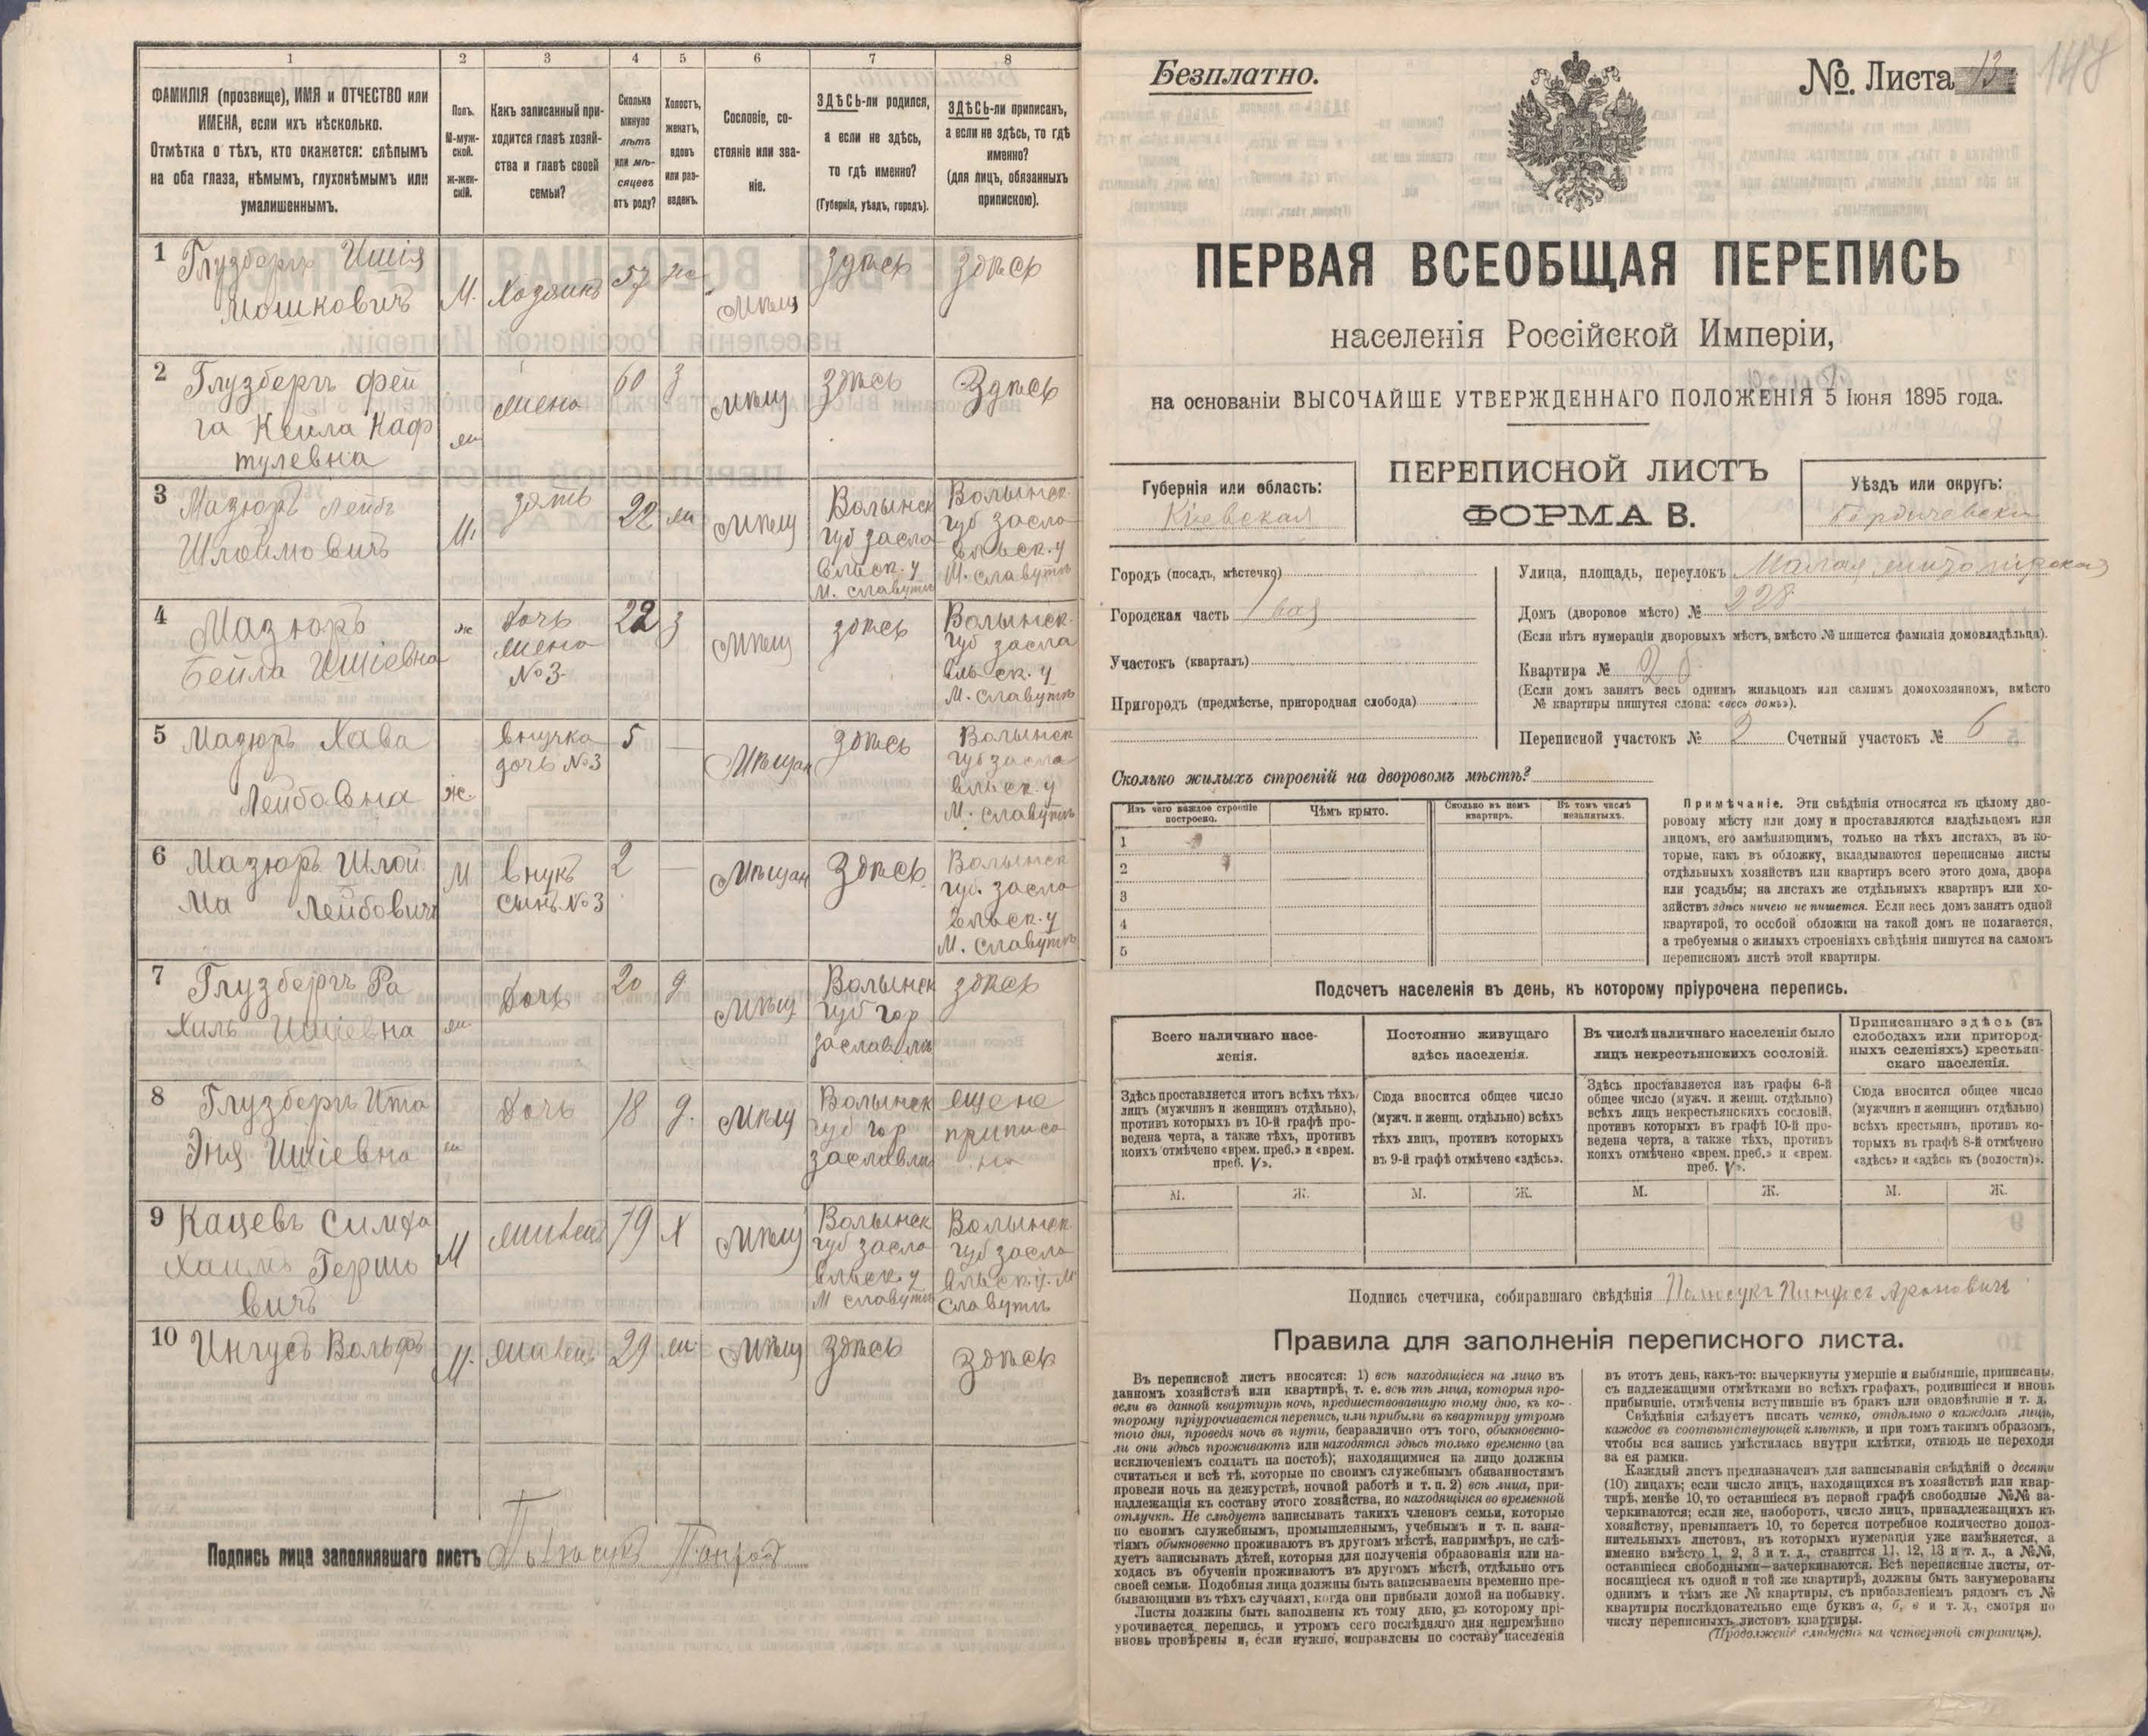 1 2 3 4 5 6 7 8
ФАМИЛІЯ (прозвище), ИМЯ и ОТЧЕСТВО или
ИМЕНА, если ихъ нѣсколько.
Отмѣтка о тѣхъ, кто окажется: слѣпымъ
на оба глаза, нѣмымъ, глухонѣмымъ или
умалишеннымъ.
Полъ.
М-муж-
ской.
Ж-жен-
скій.
Какъ записанный при-
ходится главѣ хозяй-
ства и главѣ своей
семьи?
Сколько
минуло
лѣтъ
или мѣ-
сяцевъ
отъ роду?
Холостъ,
женатъ,
вдовъ
или раз-
веденъ.
Сословіе, со-
стояніе или зва-
ніе.
ЗДѢСЬ-ли родился,
а если не здѣсь,
то гдѣ именно?
(Губернія, уѣздъ, городъ).
ЗДѢСЬ-ли приписанъ,
а если не здѣсь, то гдѣ
именно?
(для лицъ, обязанныхъ
припискою).
1 Глузбергъ Ишія
Мошковичъ
М. Хозяинъ 57 Мѣщ здѣсь здѣсь
2 Глузбергъ Фей
га Кейла Наф
тулевна
ж жена 60 з мѣщ здѣсь Здѣсь
3 Мазюръ Лейбъ
Шлоймовичъ
М. зять 22 ж мѣщ
Волынск
губ засла
вльск. у
м. Славутѣ
Волынск.
губ засла
вльск. у
М. Славутѣ
4 Мазюръ
Бейла Ишіевна
ж
Дочь
жена
№ 3
22 з мѣщ здѣсь
Волынск.
губ засла
вльск. у
М. Славутѣ
5 Мазюръ Хава
Лейбовна
ж.
внучка
дочь №3
5 — Мѣщан здѣсь
Волынск
губ засла
вльск. у
М. Славутѣ
6 Мазюръ Шлой
ма Лейбовичъ
М
внукъ
сынъ №3
2 — Мѣщан Здѣсь
Волынск
губ. засла
вльск. у
М. Славутѣ
7 Глузбергъ Ра
хиль Ишіевна
ж Дочь 20 д. мѣщ
Волынск
губ гор
заславль
здѣсь
8 Глузбергъ Ита
Эня Ишіевна
ж Дочь 18 д. мѣщ
Волынск
губ гор
заславль
еще не
приписа
на
9 Кацевъ Симха
Хаимъ Гершо
вичъ
М жилецъ 19 Х мѣщ
Волынск
губ засла
вльск. у
М Славутѣ
Волынск.
губ засла
вльск. у. М
Славутѣ
10 Ингусъ Вольфъ
М. жилецъ 29 ж. мѣщ здѣсь здѣсь
Подпись лица заполнявшаго листъ
Безплатно.
№. Листа 13
148
ПЕРВАЯ ВСЕОБЩАЯ ПЕРЕПИСЬ
населенія Россійской Имперіи,
на основаніи ВЫСОЧАЙШЕ УТВЕРЖДЕННАГО ПОЛОЖЕНІЯ 5 Іюня 1895 года.
Губернія или область:
Кіевская
ПЕРЕПИСНОЙ ЛИСТЪ
ФОРМА В.
Уѣздъ или округъ:
Бердичевскі
Городъ (посадъ, мѣстечко)
Городская часть 1 вая
Участокъ (кварталъ)
Пригородъ (предмѣстье, пригородная слобода)
Улица, площадь, переулокъ Малая
Домъ (дворовое мѣсто) № 228
(Если нѣтъ нумераціи дворовыхъ мѣстъ, вмѣсто № пишется фамилія домовладѣльца).
Квартира № 2 б
(Если домъ занятъ весь однимъ жильцомъ или самимъ домохозяиномъ, вмѣсто
№ квартиры пишутся слова: «весь домъ»).
Переписной участокъ № 2 Счетный участокъ № 6
Сколько жилыхъ строеній на дворовомъ мѣстѣ?
Изъ чего каждое строеніе
построено.
Чѣмъ крыто.
Сколько въ немъ
квартиръ.
Въ томъ числѣ
незанятыхъ.
1
2
3
4
5
Примѣчаніе. Эти свѣдѣнія относятся къ цѣлому дво-
ровому мѣсту или дому и проставляются владѣльцемъ или
лицомъ, его замѣняющимъ, только на тѣхъ листахъ, въ ко-
торые, какъ въ обложку, вкладываются переписные листы
отдѣльныхъ хозяйствъ или квартиръ всего этого дома, двора
или усадьбы; на листахъ же отдѣльныхъ квартиръ или хо-
зяйствъ здѣсь ничего не пишется. Если весь домъ занятъ одной
квартирой, то особой обложки на такой домъ не полагается,
а требуемыя о жилыхъ строеніяхъ свѣдѣнія пишутся на самомъ
переписномъ листѣ этой квартиры.
Подсчетъ населенія въ день, къ которому пріурочена перепись.
Всего наличнаго насе-
ленія.
Постоянно живущаго
здѣсь населенія.
Въ числѣ наличнаго населенія было
лицъ некрестьянскихъ сословій.
Приписаннаго здѣсь (въ
слободахъ или пригород-
ныхъ селеніяхъ) крестьян-
скаго населенія.
Здѣсь проставляется итогъ всѣхъ тѣхъ
лицъ (мужчинъ и женщинъ отдѣльно),
противъ которыхъ въ 10-й графѣ про-
ведена черта, а также тѣхъ, противъ
коихъ отмѣчено «врем. преб.» и «врем.
преб. V».
Сюда вносится общее число
(мужч. и женщ. отдѣльно) всѣхъ
тѣхъ лицъ, противъ которыхъ
въ 9-й графѣ отмѣчено «здѣсь».
Здѣсь проставляется изъ графы 6-й
общее число (мужч. и женщ. отдѣльно)
всѣхъ лицъ некрестьянскихъ сословій,
противъ которыхъ въ графѣ 10-й про-
ведена черта, а также тѣхъ, противъ
коихъ отмѣчено «врем. преб.» и «врем.
преб. V».
Сюда вносится общее число
(мужчинъ и женщинъ отдѣльно)
всѣхъ крестьянъ, противъ ко-
торыхъ въ графѣ 8-й отмѣчено
«здѣсь» и «здѣсь къ (волости)».
М. Ж. М. Ж. М. Ж. М. Ж.
Подпись счетчика, собиравшаго свѣдѣнія Полисукъ Пинхусъ Ароновичъ
Правила для заполненія переписного листа.
Въ переписной листъ вносятся: 1) всѣ находящіеся на лицо въ
данномъ хозяйствѣ или квартирѣ, т. е. всѣ тѣ лица, которыя про-
вели въ данной квартирѣ ночь, предшествовавшую тому дню, къ ко-
торому пріурочивается перепись, или прибыли въ квартиру утромъ
того дня, проведя ночь въ пути, безразлично отъ того, обыкновенно-
ли они здѣсь проживаютъ или находятся здѣсь только временно (за
исключеніемъ солдатъ на постоѣ); находящимися на лицо должны
считаться и всѣ тѣ, которые по своимъ служебнымъ обязанностямъ
провели ночь на дежурствѣ, ночной работѣ и т. п. 2) всѣ лица, при-
надлежащія къ составу этого хозяйства, но находящіяся во временной
отлучкѣ. Не слѣдуетъ записывать такихъ членовъ семьи, которые
по своимъ служебнымъ, промышленнымъ, учебнымъ и т. п. заня-
тіямъ обыкновенно проживаютъ въ другомъ мѣстѣ, напримѣръ, не слѣ-
дуетъ записывать дѣтей, которыя для полученія образованія или на-
ходясь въ обученіи проживаютъ въ другомъ мѣстѣ, отдѣльно отъ
своей семьи. Подобныя лица должны быть записываемы временно пре-
бывающими въ тѣхъ случаяхъ, когда они прибыли домой на побывку.
Листы должны быть заполнены къ тому дню, къ которому прі-
урочивается перепись, и утромъ сего послѣдняго дня непремѣнно
вновь провѣрены и, если нужно, исправлены по составу населенія
въ этотъ день, какъ-то: вычеркнуты умершіе и выбывшіе, приписаны,
съ надлежащими отмѣтками во всѣхъ графахъ, родившіеся и вновь
прибывшіе, отмѣчены вступившіе въ бракъ или овдовѣвшіе и т. д.
Свѣдѣнія слѣдуетъ писать четко, отдѣльно о каждомъ лицѣ,
каждое въ соотвѣтствующей клѣткѣ, и при томъ такимъ образомъ,
чтобы вся запись умѣстилась внутри клѣтки, отнюдь не переходя
за ея рамки.
Каждый листъ предназначенъ для записыванія свѣдѣній о десяти
(10) лицахъ; если число лицъ, находящихся въ хозяйствѣ или квар-
тирѣ, менѣе 10, то оставшіеся въ первой графѣ свободные №№ за-
черкиваются; если же, наоборотъ, число лицъ, принадлежащихъ къ
хозяйству, превышаетъ 10, то берется потребное количество допол-
нительныхъ листовъ, въ которыхъ нумерація уже измѣняется, а
именно вмѣсто 1, 2, 3 и т. д., ставится 11, 12, 13 и т. д., а №№,
оставшіеся свободными—зачеркиваются. Всѣ переписные листы, от-
носящіеся къ одной и той же квартирѣ, должны быть занумерованы
однимъ и тѣмъ же № квартиры, съ прибавленіемъ рядомъ съ №
квартиры послѣдовательно еще буквъ а, б, в и т. д., смотря по
числу переписныхъ листовъ квартиры.
(Продолженіе слѣдуетъ на четвертой страницѣ).